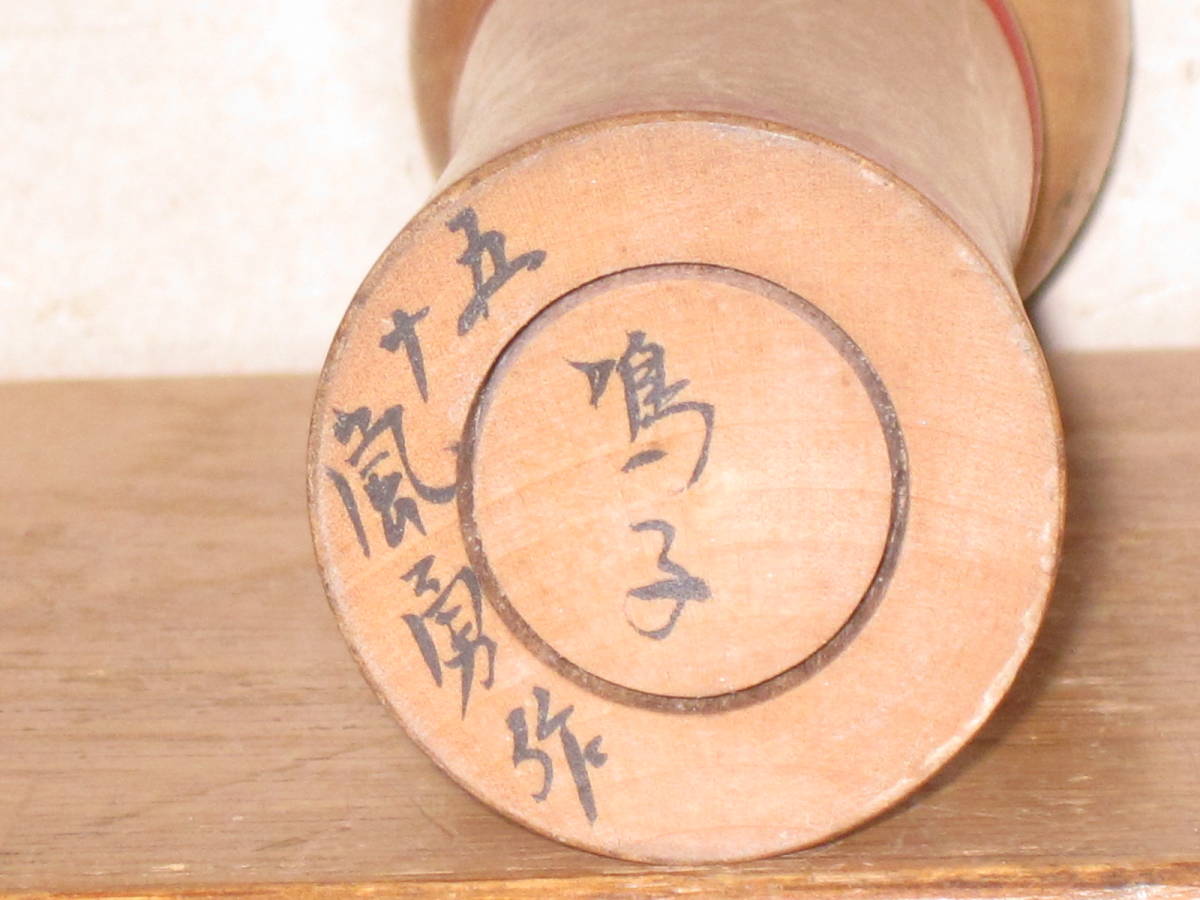 鳴子
五十嵐勇作